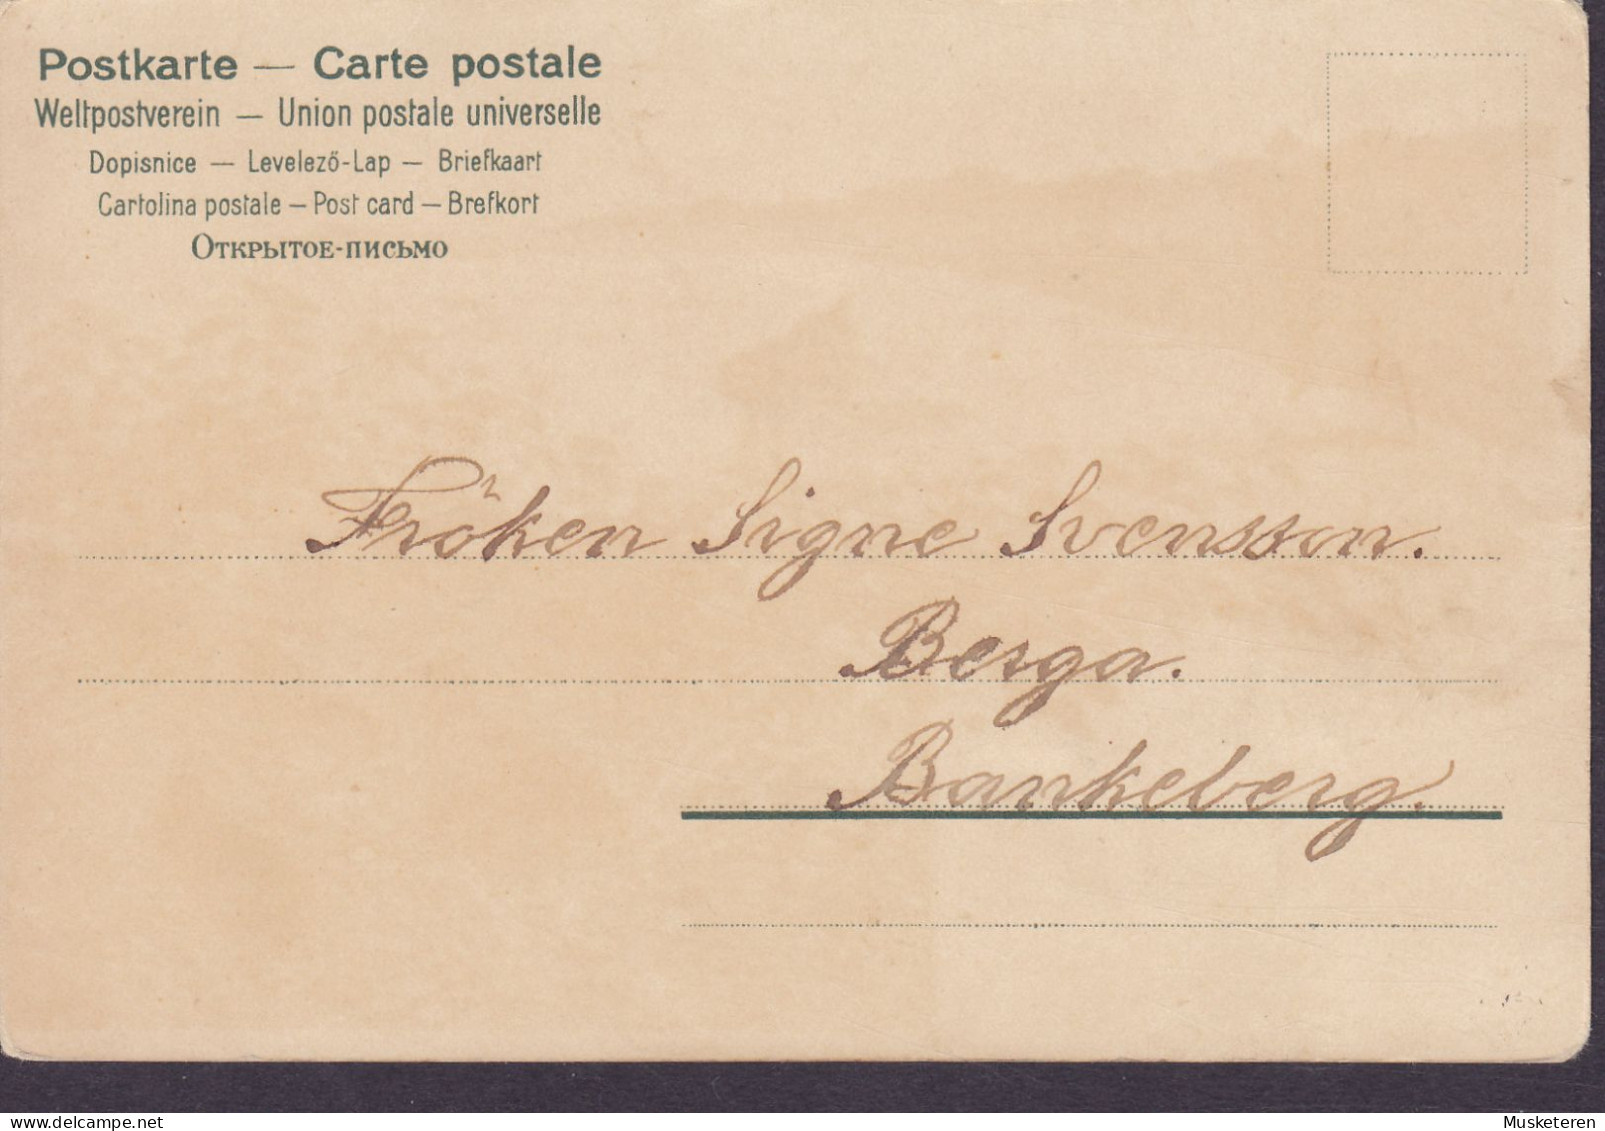 Postkarte — Carte postale
Weltpostverein — Union postale universelle
Dopisnice — Levelező-Lap — Briefkaart
Cartolina postale — Post card — Brefkort
Открытое-письмо
Fröken Signe Svensson.
Berga.
Bankeberg.
Musketeren